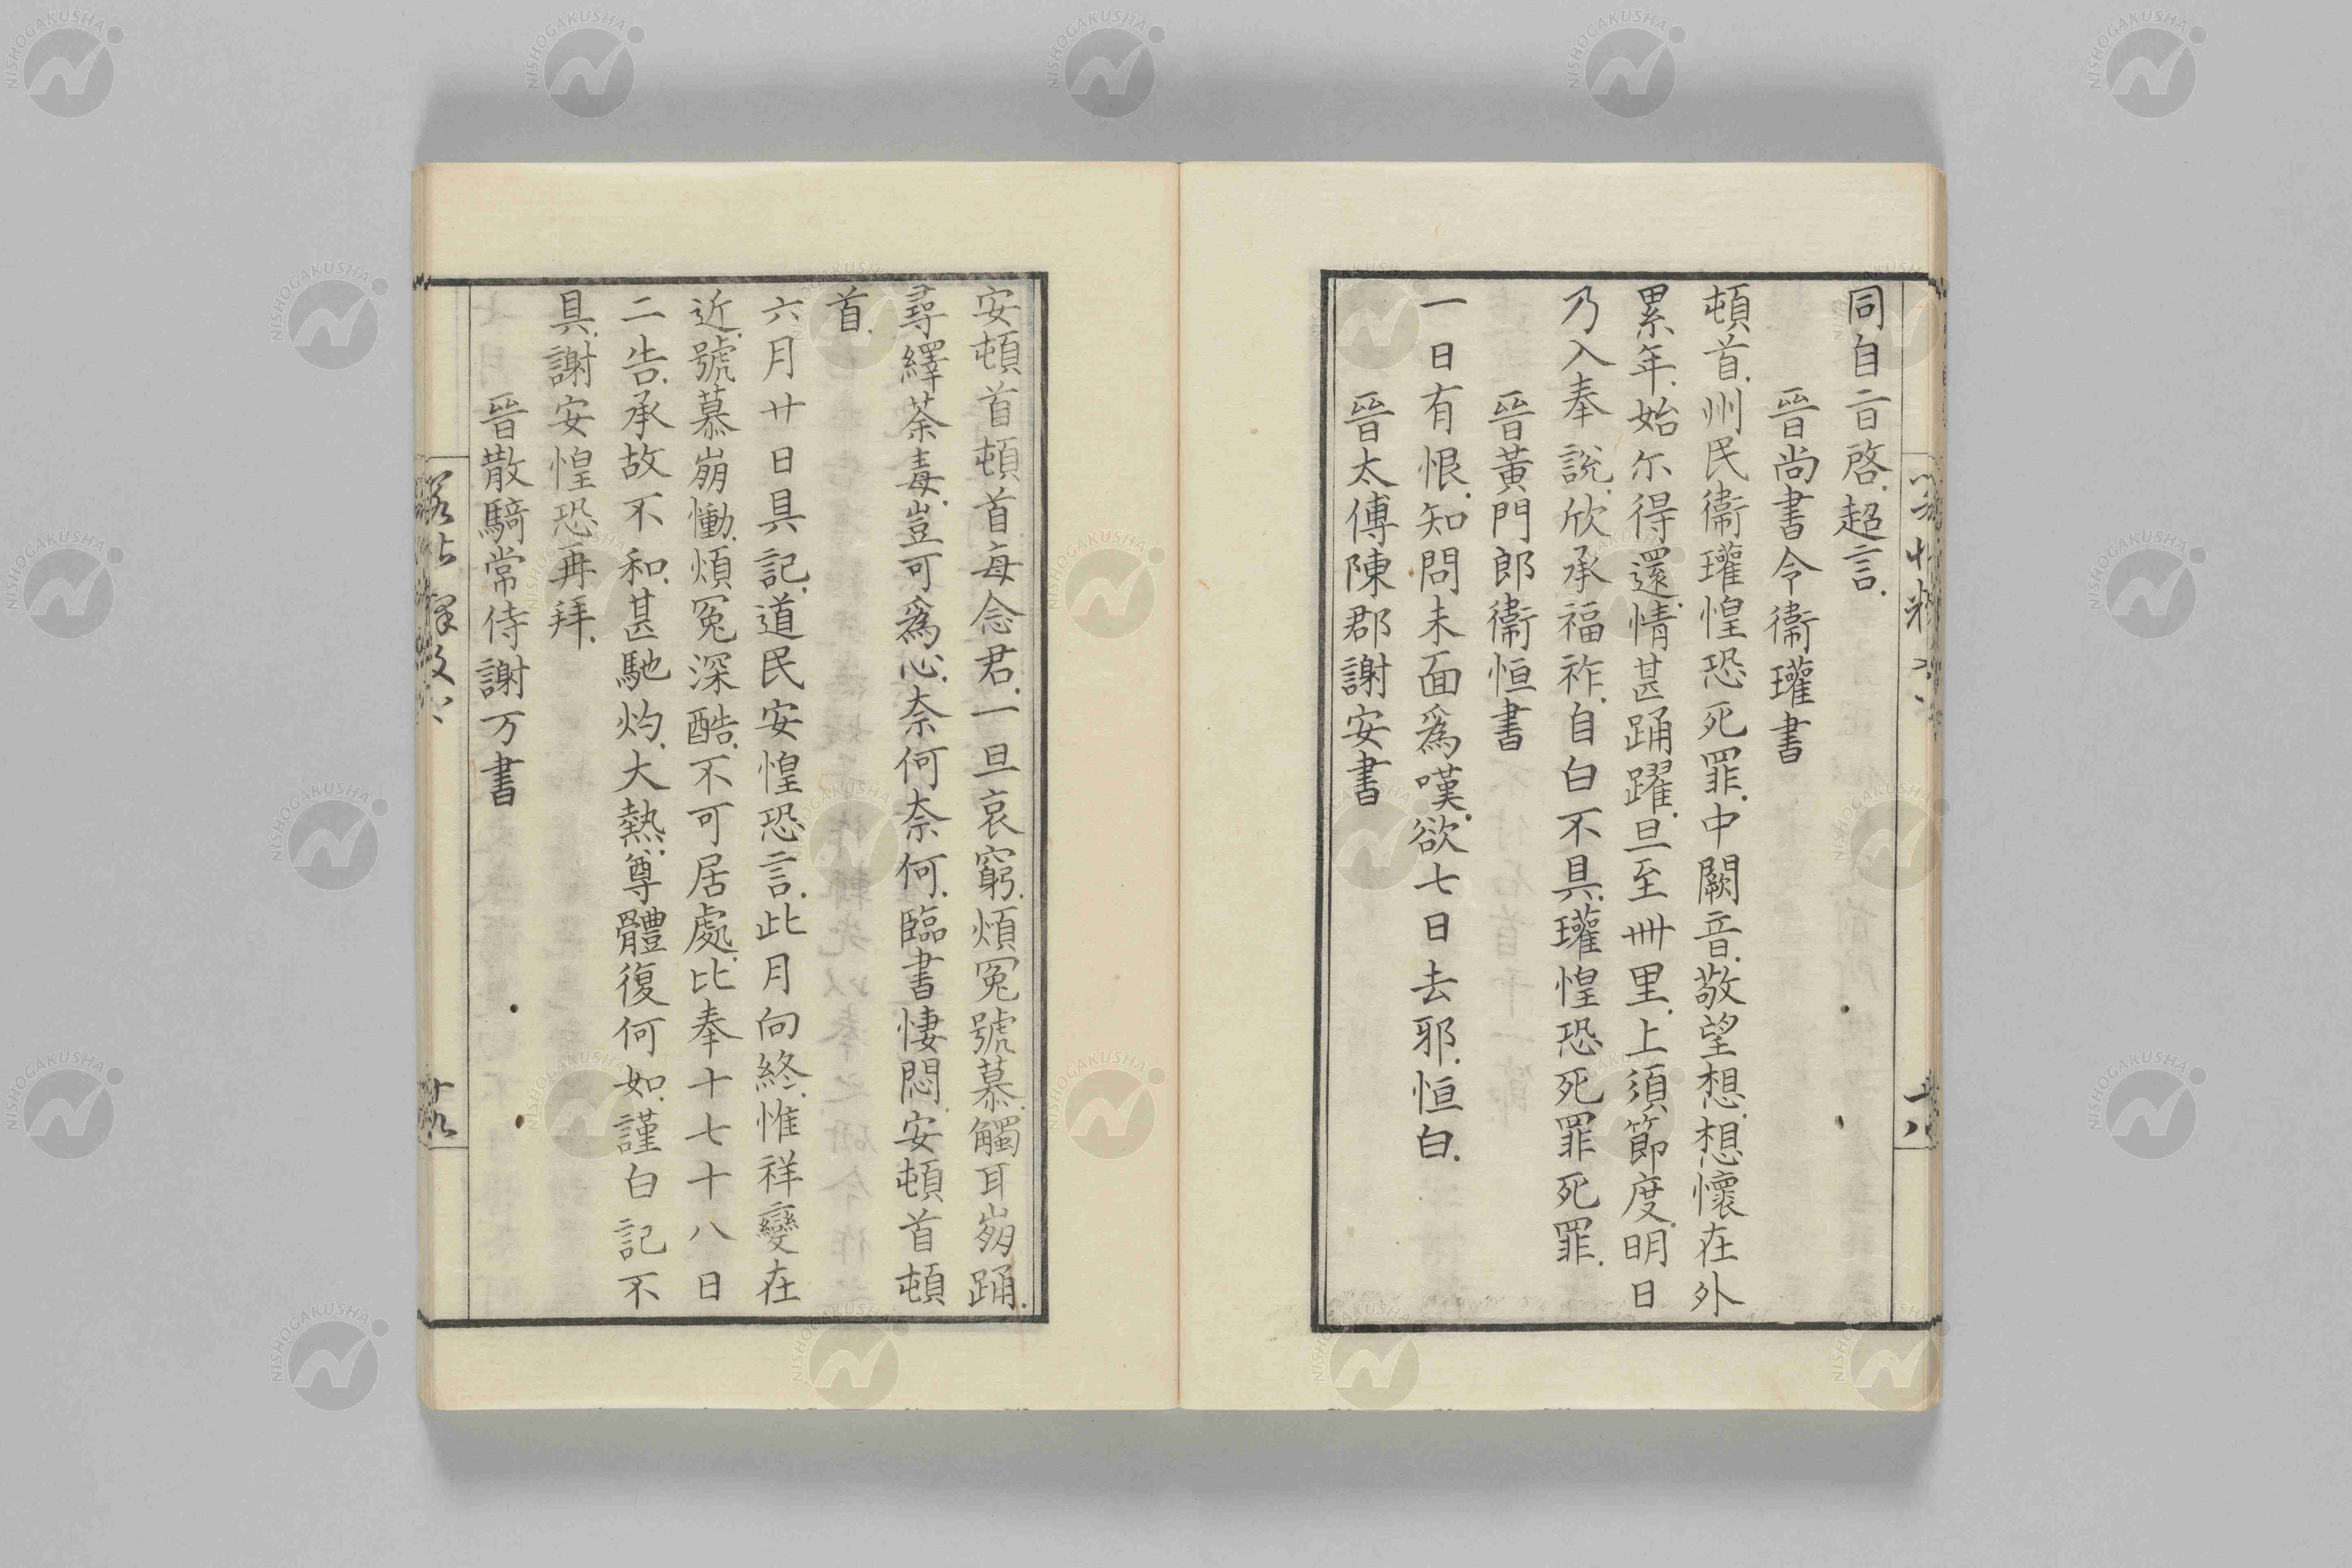 同自二日啓超言
晉尚書令衞瓘書
頓首州民衞瓘惶恐死罪中闕音敬望想想懷在外
累年始尓得還情甚踊躍旦至卌里上須節度明日
乃入奉說欣承福祚自白不具瓘惶恐死罪死罪
晉黃門郎衞恒書
一日有恨知問未面爲嘆欲七日去邪恒白
晉太傅陳郡謝安書
安頓首頓首每念君一旦哀窮煩冤號慕觸耳崩踊
尋繹荼毒豈可爲心奈何奈何臨書悽悶安頓首頓
首
六月廿日具記道民安惶恐言此月向終惟祥變在
近號慕崩慟煩冤深酷不可居處比奉十七十八日
二告承故不和甚馳灼大熱尊體復何如謹白記不
具謝安惶恐再拜
晉散騎常侍謝万書